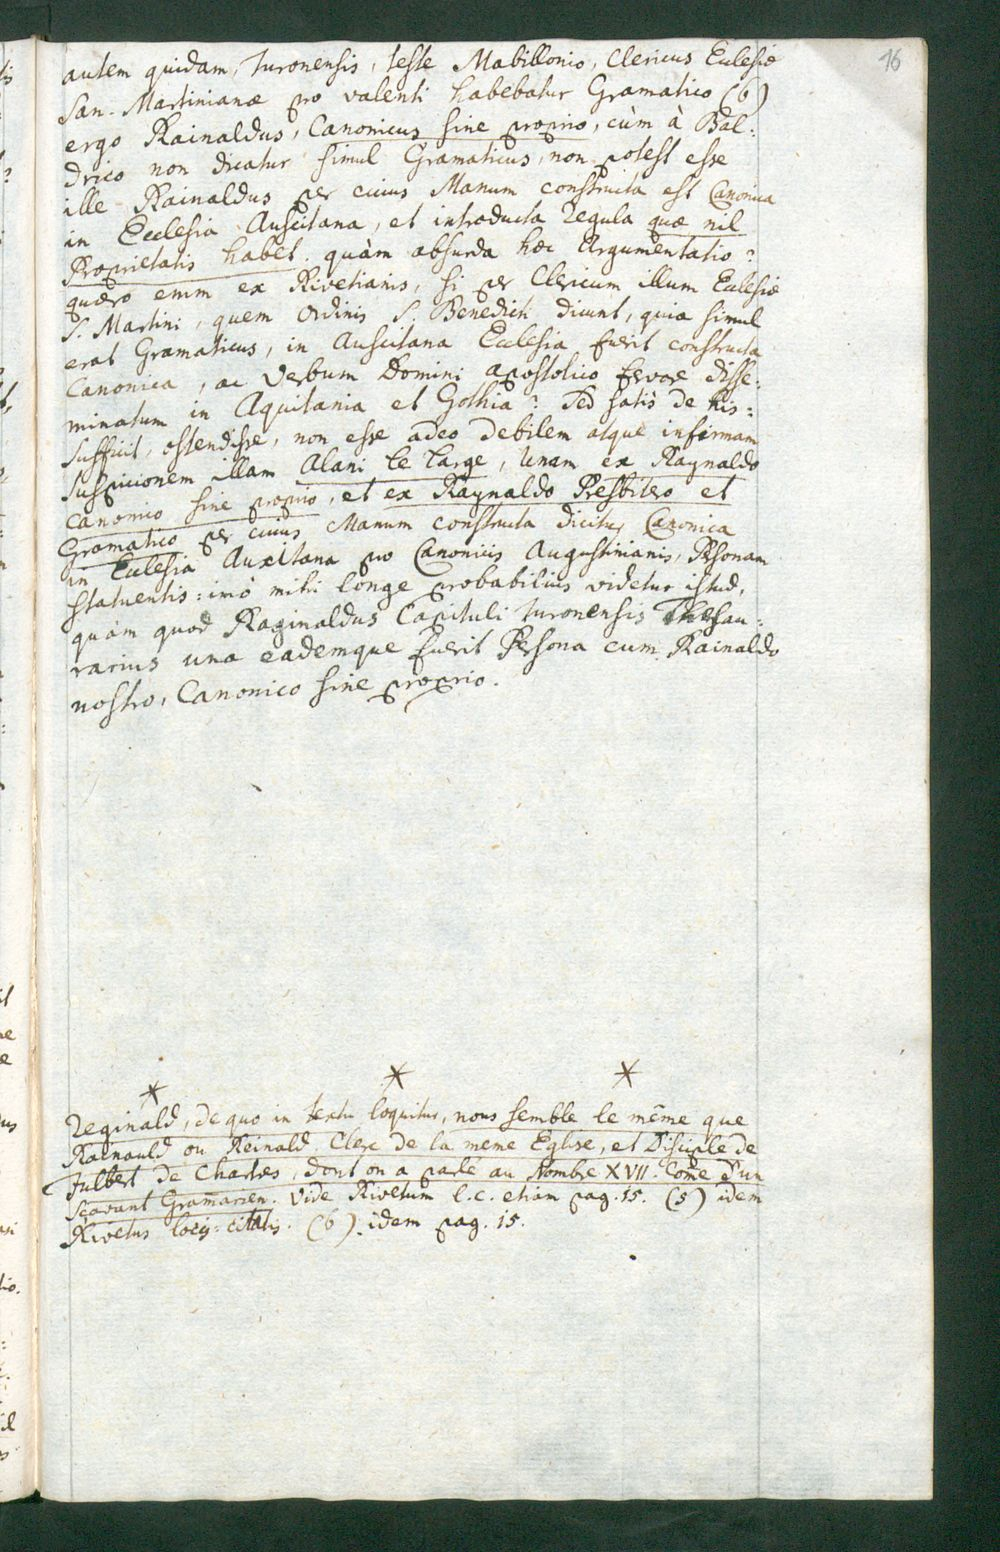 16
autem quidam, Turonensis, teste Mabillonio, Clericus Eclesiæ
San-Martinianæ pro valenti habebatur Gramatico (6)
ergo Rainaldus, Canonicus sine proprio, cùm à Bal:
drico non dicatur simul Gramaticus, non potest esse
ille Rainaldus per cuius Manum constructa est Canonica
in Ecclesia Auscitana, et introducta regula quæ nil
Proprietatis habet. quàm absurda hæc Argumentatio?
quæro enim ex Rivetianis, si per Clericum illum Eclesiæ
S. Martini, quem Ordinis S. Benedicti dicunt, quia simul
erat Gramaticus, in Auscitana Ecclesia fuerit constructa
Canonica, ac Verbum Domini apostolico fervore disse:
minatum in Aquitania et Gothia? Sed satis de his:
sufficit, ostendisse, non esse adeo debilem atque infirmam
suspicionem illam Alani le Large, Unam ex Raynaldo
Canonico sine proprio, et ex Raynaldo Presbitero et
Gramatico per cuius Manum constructa dicitur Canonica
in Eclesia Auxitana pro Canonicis Augustinianis, Personam
statuentis: imò mihi longe probabilius videtur istud,
quàm quod Raginaldus Capituli Turonensis Thesau:
rarius una eademque fuerit Persona cum Rainaldo
nostro, Canonico sine proprio.
* * *
Reginald, de quo in textu loquitur, nous semble le même que
Rainauld ou Reinald Clerc de la meme Eglise, et Disciple de
Fulbert de Chartres, dont on a parlé au Nombre XVII. Come d'un
sçavant Gramarien. Vide Rivetum l.c. etiam pag. 15. (5) idem
Rivetus locis citatis. (6) idem pag. 15.